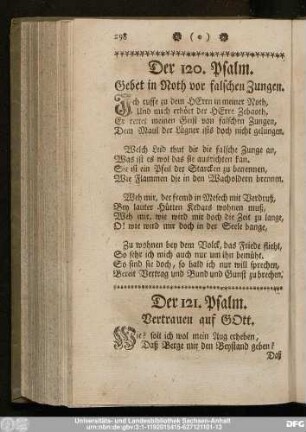 298
Der 120. Psalm.
Gebet in Noth vor falschen Zungen.
Ich ruffe zu dem HErrn in meiner Noth,
Und mich erhört der HErre Zebaoth,
Er rettet meinen Geist von falschen Zungen,
Dem Maul der Lügner ists doch nicht gelungen.
Welch Leid that dir die falsche Zunge an,
Was ist es wol das sie ausrichten kan.
Sie ist ein Pfeil der Starcken zu benennen,
Wie Flammen die in den Wacholdern brennen.
Weh mir, der fremd in Mesech mit Verdruß,
Bey lauter Hütten Kedars wohnen muß,
Weh mir, wie wird mir doch die Zeit zu lange,
O! wie wird mir doch in der Seele bange.
Zu wohnen bey dem Volck, das Friede flieht,
So sehr ich mich auch nur um ihn bemüht.
So sind sie doch, so bald ich nur will sprechen,
Bereit Vertrag und Bund und Gunst zu brechen.
Der 121. Psalm.
Vertrauen auf GOtt.
Wie? soll ich wol mein Aug erheben,
Daß Berge mir den Beystand geben?
Daß
Universitäts- und Landesbibliothek Sachsen-Anhalt
urn:nbn:de:gbv:3:1-1192015415-627121101-13
DFG